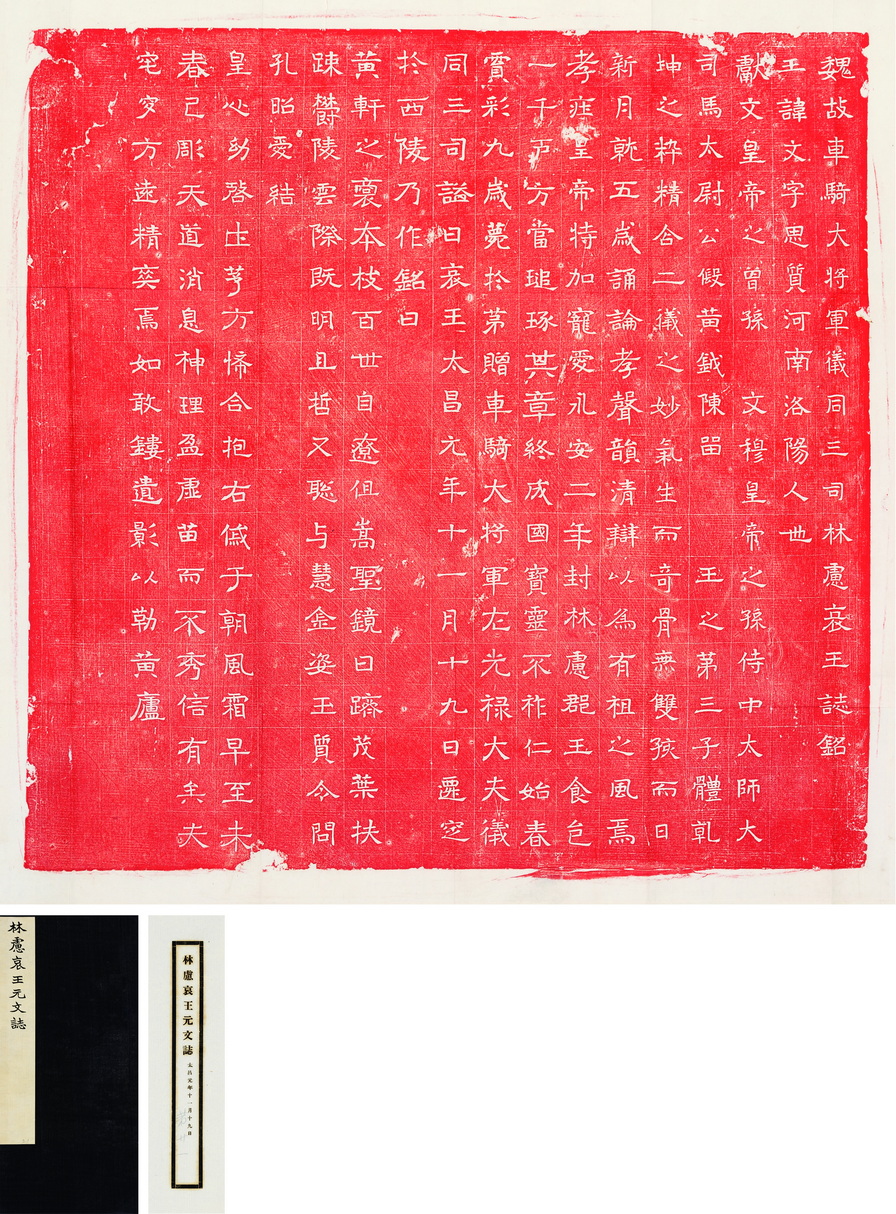 魏故車騎大將軍儀同三司林慮哀王誌銘
王諱文字思質河南洛陽人也
獻文皇帝之曾孫 文穆皇帝之孫侍中太師大
司馬太尉公假黃鉞陳留 王之第三子體乹
坤之粹精合二儀之妙氣生而奇骨無雙孩而日
新月就五歲誦論孝聲韻清辯以為有祖之風焉
孝莊皇帝特加寵愛永安二年封林慮郡王食邑
一千戶方當瑝琢其章終成國寶靈不祚仁始春
實彩九歲薨於第贈車騎大將軍左光祿大夫儀
同三司謚曰哀王太昌元年十一月十九日遷窆
於西陵乃作銘曰
黃軒之裔本枝百世自遼徂嵩聖鏡日躋茂葉扶
疎欝陵雲際既明且哲又聡与慧金姿玉質令問
孔昭愛結
皇心幼啓茅方悕合抱右戚于朝風霜早至未
春已彫天道消息神理盈虛苗而不秀信有矣夫
窀穸方遠精奕焉如敢鏤遺影以勒黃廬
林慮哀王元文誌
林慮哀王元文誌
太昌元年十一月十九日